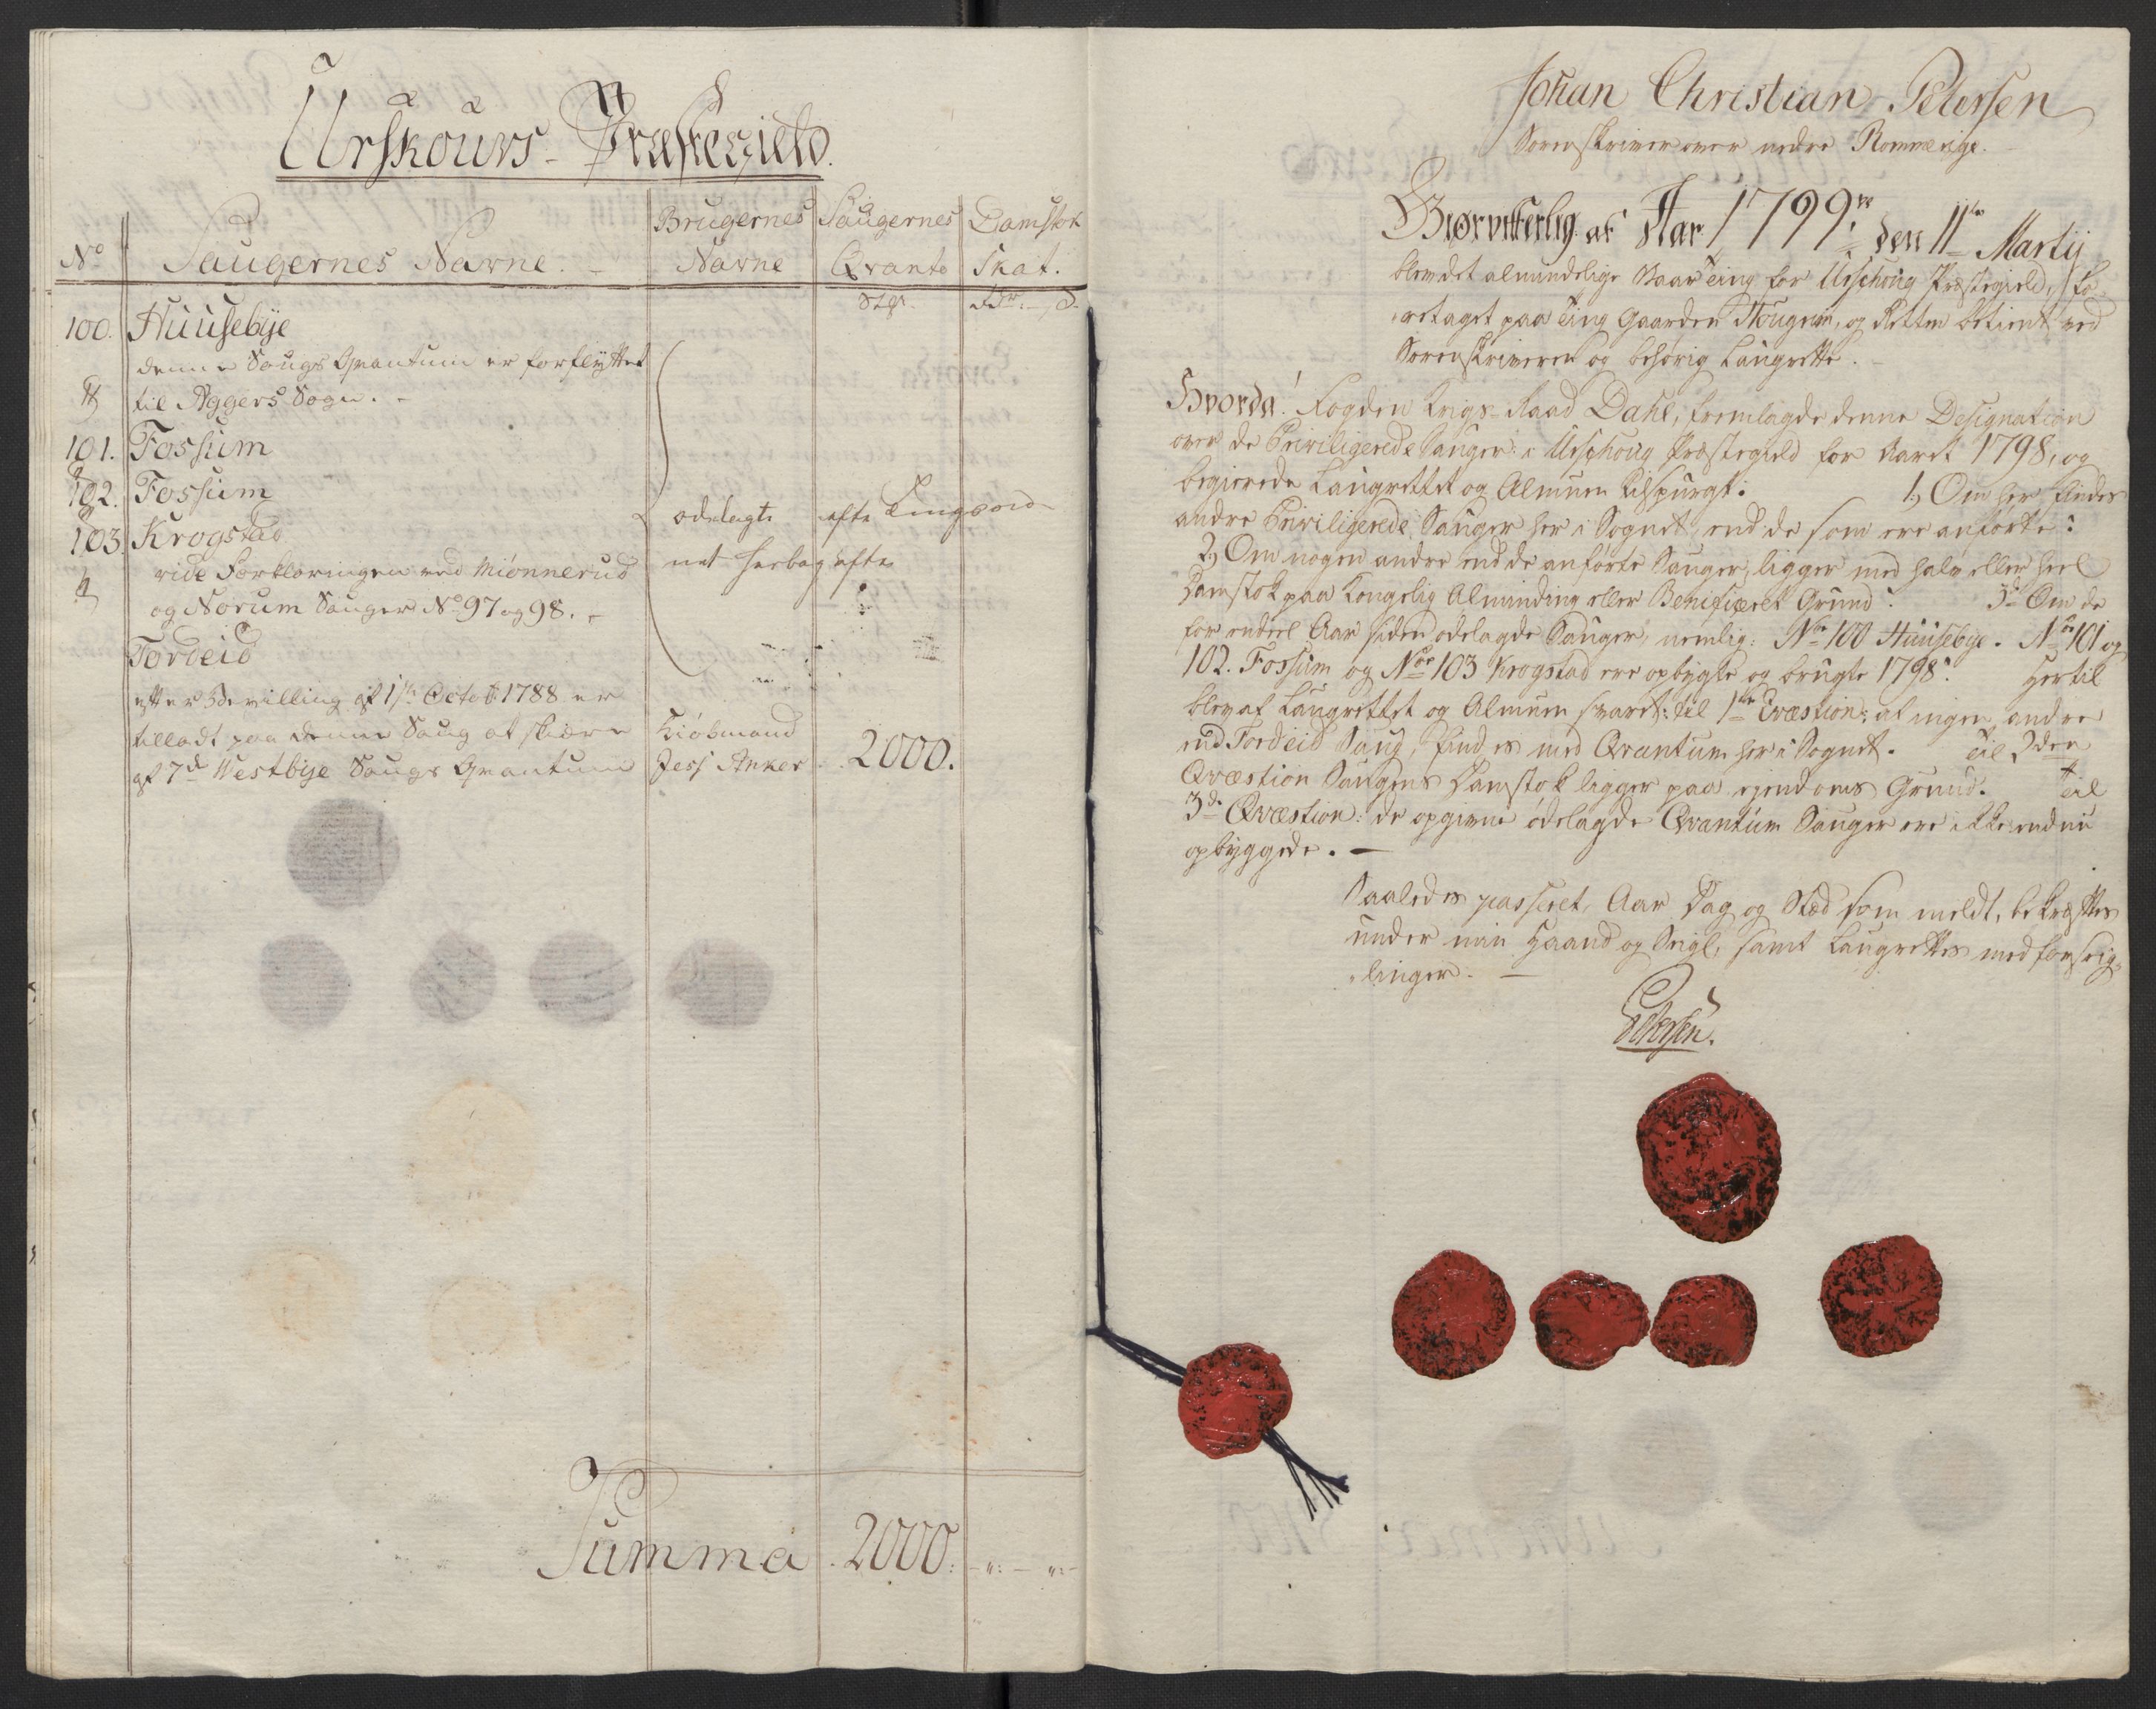 Urskours Præstegield.
No
Saugernes Navne.
Brugernes Navne
Saugernes Qvanto
Damstok Skat.
100. Huusebye
denne Saugs Qvantum er forflyttet
til Aggers Sogn.
101. Fossum
102. Fossum
103. Krogstad
vide Forklaringen ved Miønnerud
og Norum Sauger No 97 og 98.
ødelagte efte
Tordeid
efter Bevilling af 1ste Octob: 1788 er
tilladt paa denne Saug at skiære
af 7de Westbye Saugs Qvantum
Kiøbmand
Jess Anker 2000.
Summa 2000.
Johan Christian Petersen
Sorenskriver over nedre Rommerige.
Giør vitterlig at Aar 1799, den 11te Martij
blev det almindelige Vaar Ting for Urschoug Præstegield, fo-
retaget paa Ting Gaarden Hougrim, og Retten betient ved
Sorenskriveren og behørig Laugrette.
Hvorda! Fogden Krigs-Raad Dahl, fremlagde denne Designation
over de Priviligerede Sauger i Urschoug Præstegield for Aaret 1798, og
begierede Laugrettet og Almuen tilspurgt: 1) Om her findes
andre Priviligerede Sauger her i Sognet, end de som ere anførte:
2) Om nogen andre end de anførte Sauger, ligger med halv eller heel
Damstok paa Kongelig Alminding eller Benificeret Grund. 3de Om de
for endeel Aar siden ødelagde Sauger, nemlig: No 100 Huusebye. No 101 og
102. Fossum og No 103 Krogstad ere opbygte og brugte 1798. Hertil
blev af Laugrettet og Almuen svaret: til 1ste Qvæstion: at ingen andre
end Tordeid Saug, findes med Qvantum her i Sognet. Til 2den
Qvæstion Saugens Damstok ligger paa ejendoms Grund. Til
3de Qvæstion: de opgivne ødelagde Qvantum Sauger ere ikke endnu
opbyggede. —
Saaledes passeret, Aar Dag og Stæd som meldt, bekræftes
under min Haand og Seigl, samt Laugrettes medforseig-
linger. —
Petersen.